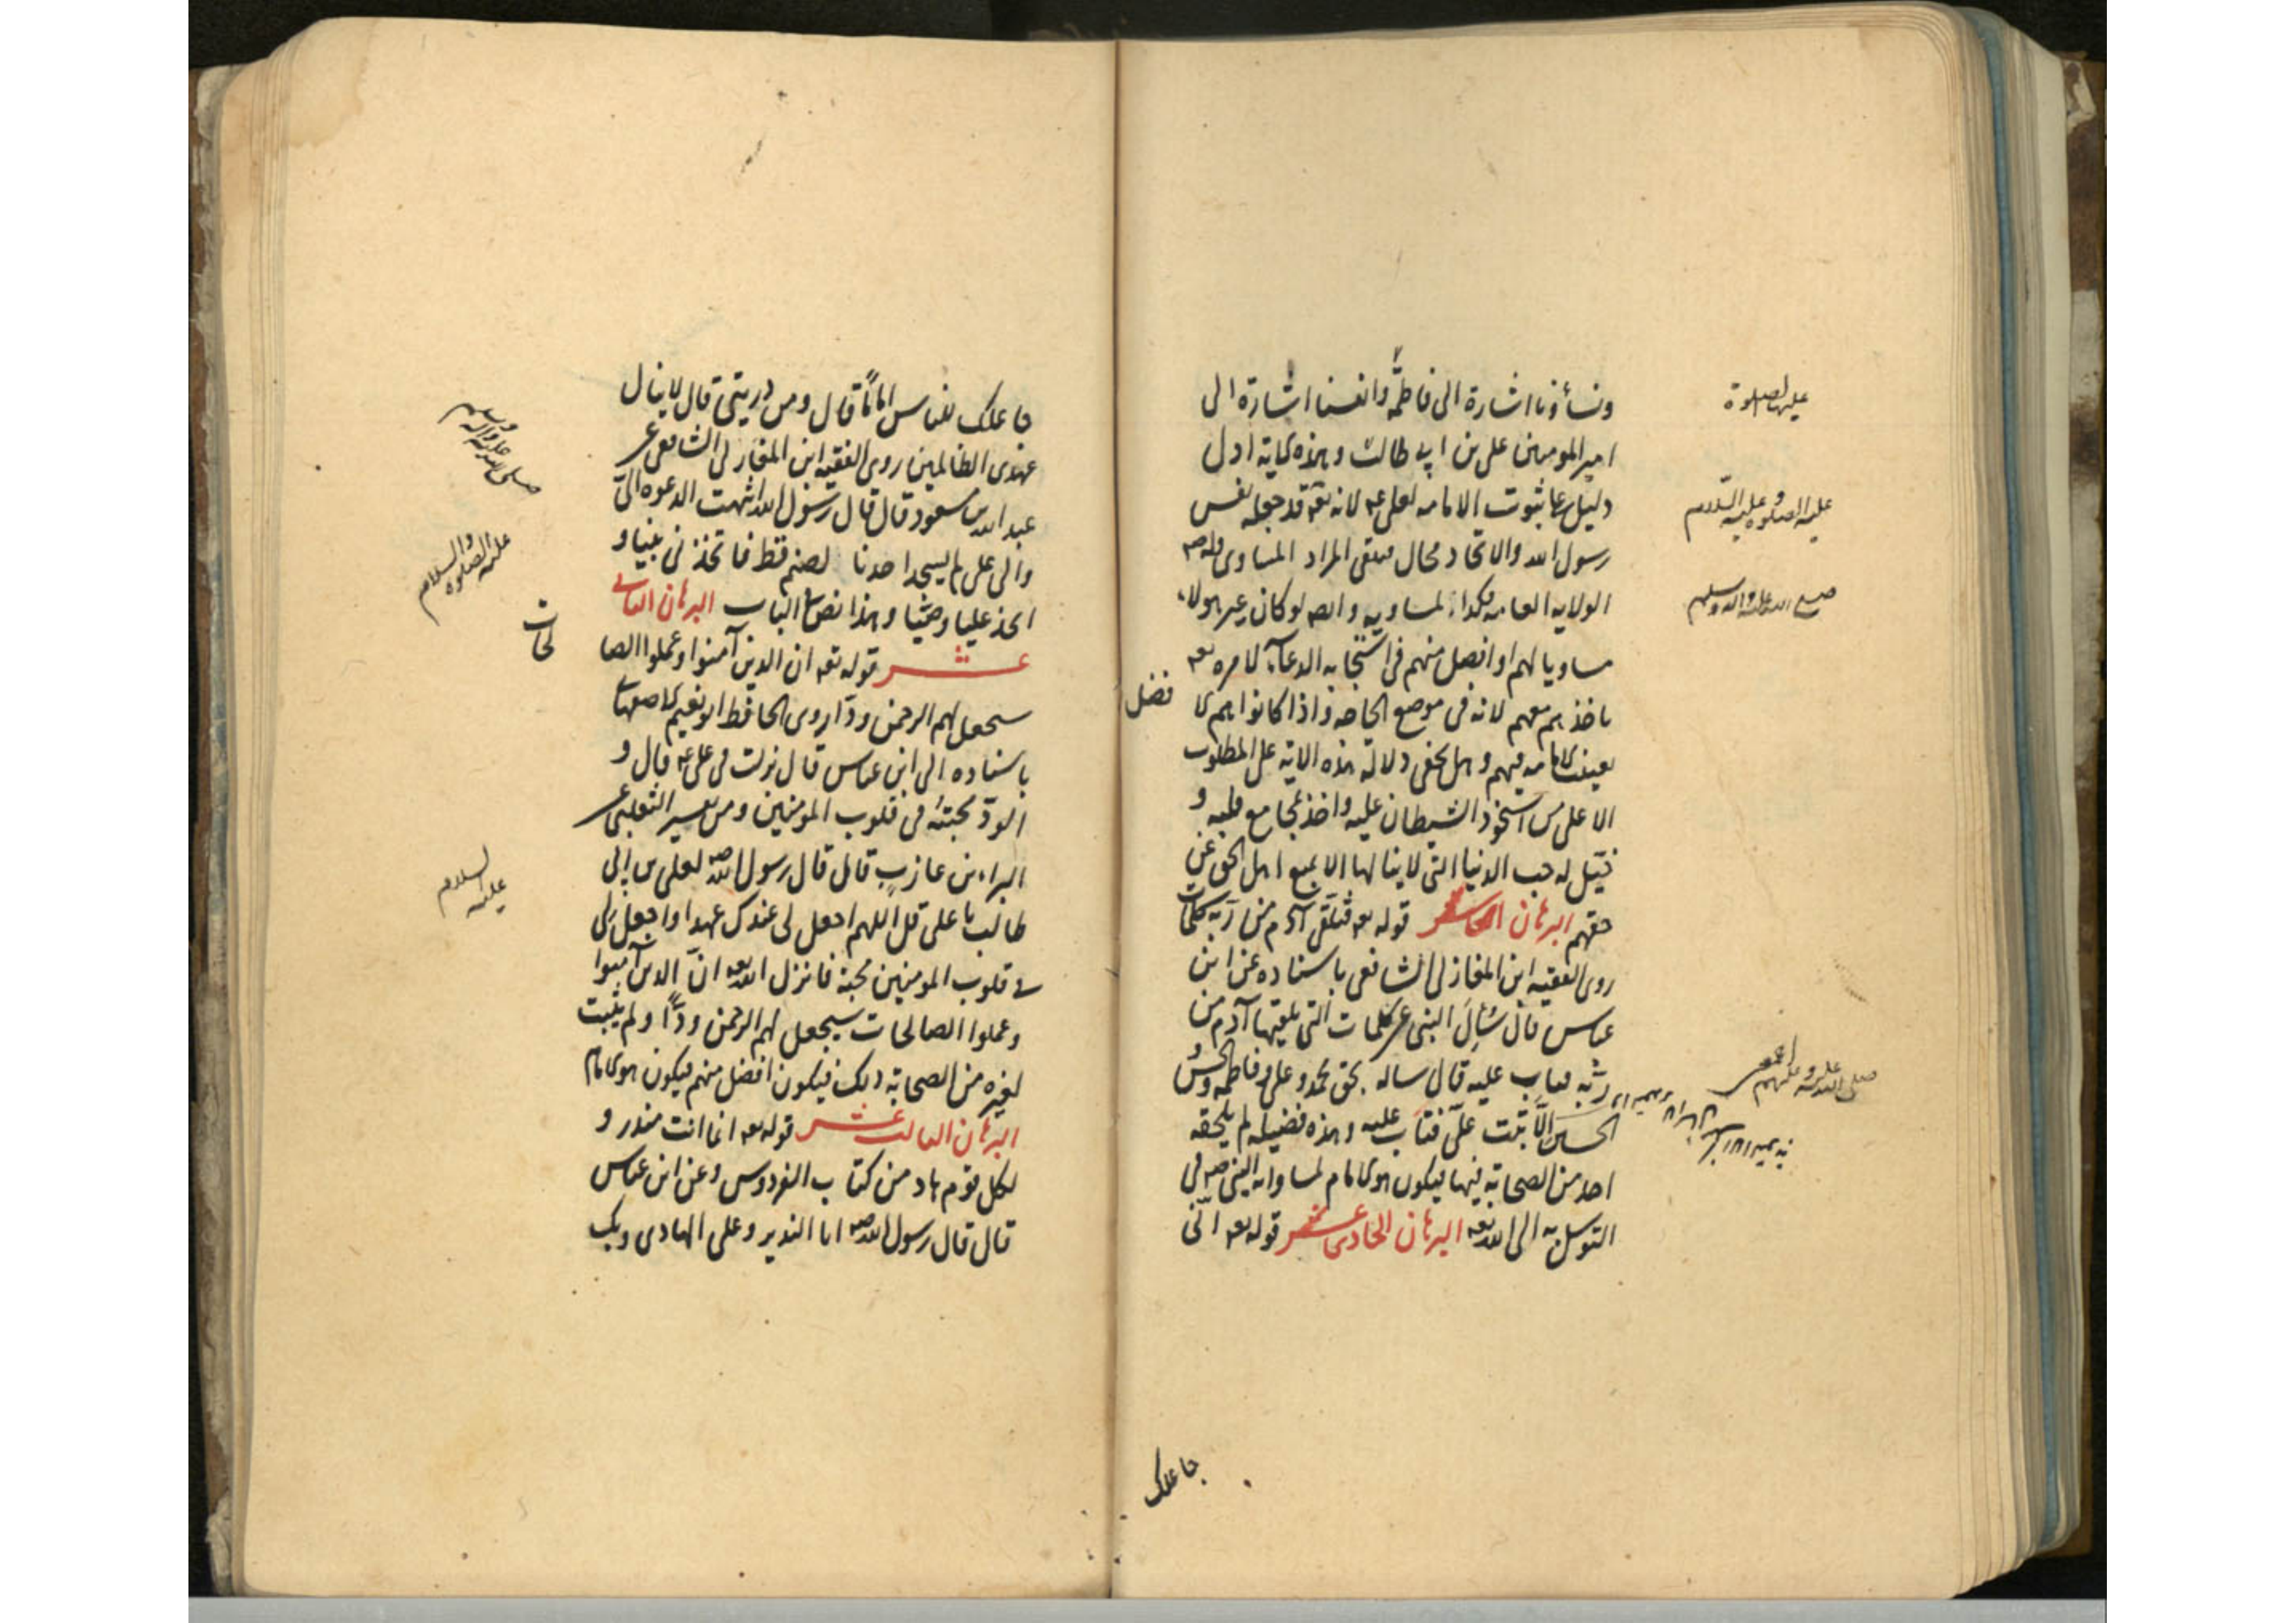 ونساؤنا اشارة الى فاطمة وانفسنا اشارة الى
امير المومنين على بن ابى طالب وهذه الاية ادل
دليل على ثبوت الامامه لعلى عه لانه تعه قد جعله نفس
رسول الله والاتحاد محال فيبقى المراد المساوى وله صه
الولايه العامه فكذا لمساويه وايضا لو كان غير هولاء
مساويا لهم او افضل منهم فى استجابه الدعاء لامره تعه
باخذهم معهم لانه فى موضع الحاجه واذا كانوا هم الا
فضل
تعينت الامامه فيهم وهل يخفى دلالة هذه الاية على المطلوب
الا على من استحوذ الشيطان عليه واخذ بمجامع قلبه و
خيّل له حب الدنيا التى لا ينالها الا بمنع اهل الحق عن
حقهم البرهان العاشر قوله تعه فتلقى آدم من ربه كلمات
روى الفقيه ابن المغازلى الشافعى باسناده عن ابن
عباس قال سُئِلَ النبى عن الكلمات التى تلقيها آدم من
ربّه فتاب عليه قال ساله بحق محمد وعلى وفاطمه والحسن و
الحسين الّا تبت علىّ فتاب عليه وهذه فضيله لم يلحقه
احد من الصحابة فيها فيكون هو الامام لمساواته النبى صه فى
التوسل به الى الله تعه البرهان الحادى عشر قوله تعه انّى
جاعلك
عليها الصلوة
عليه الصلوة و عليه السّلام
صلى الله عليه واله وسلم
صلى الله عليه و عليهم اجمعين
جاعلك للناس اماماً قال ومن ذريتى قال لا ينال
عهدى الظالمين روى الفقيه ابن المغازلى الشافعى عن
عبد الله بن مسعود قال قال رسول الله انتهت الدعوه الىّ
والى على لم يسجد احدنا لصنم قط فاتخذنى نبيا و
اتخذ عليا وصيّا وهذا نص فى الباب البرهان الثانى
عشر قوله تعه ان الذين آمنوا وعملوا الصا
لحات
سيجعل لهم الرحمن ودّا روى الحافظ ابو نعيم الاصفهانى
باسناده الى ابن عباس قال نزلت فى على عه قال و
الودّ محبته فى قلوب المومنين ومن تفسير الثعلبى عن
البراء بن عازب قال قال رسول الله صه لعلى بن ابى
طالب يا على قل اللهم اجعل لى عندك عهدا واجعل لى
فى قلوب المومنين محبة فانزل الله تعه انّ الذين آمنوا
وعملوا الصالحات سيجعل لهم الرحمن ودّاً ولم يثبت
لغيره من الصحابة ذلك فيكون افضل منهم فيكون هو الامام
البرهان الثالث عشر قوله تعه انما انت منذر و
لكل قوم هاد من كتاب الفردوس وعن ابن عباس
قال قال رسول الله صه انا النذير وعلى الهادى وبك
صلى الله عليه واله وسلم
عليه الصلوه والسلام
عليه السلام